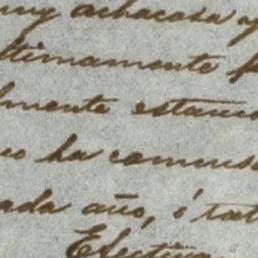 muy achacosa y
ltimamente
lmente estamos
ha comenso
ada año, ó tal
Efectiva